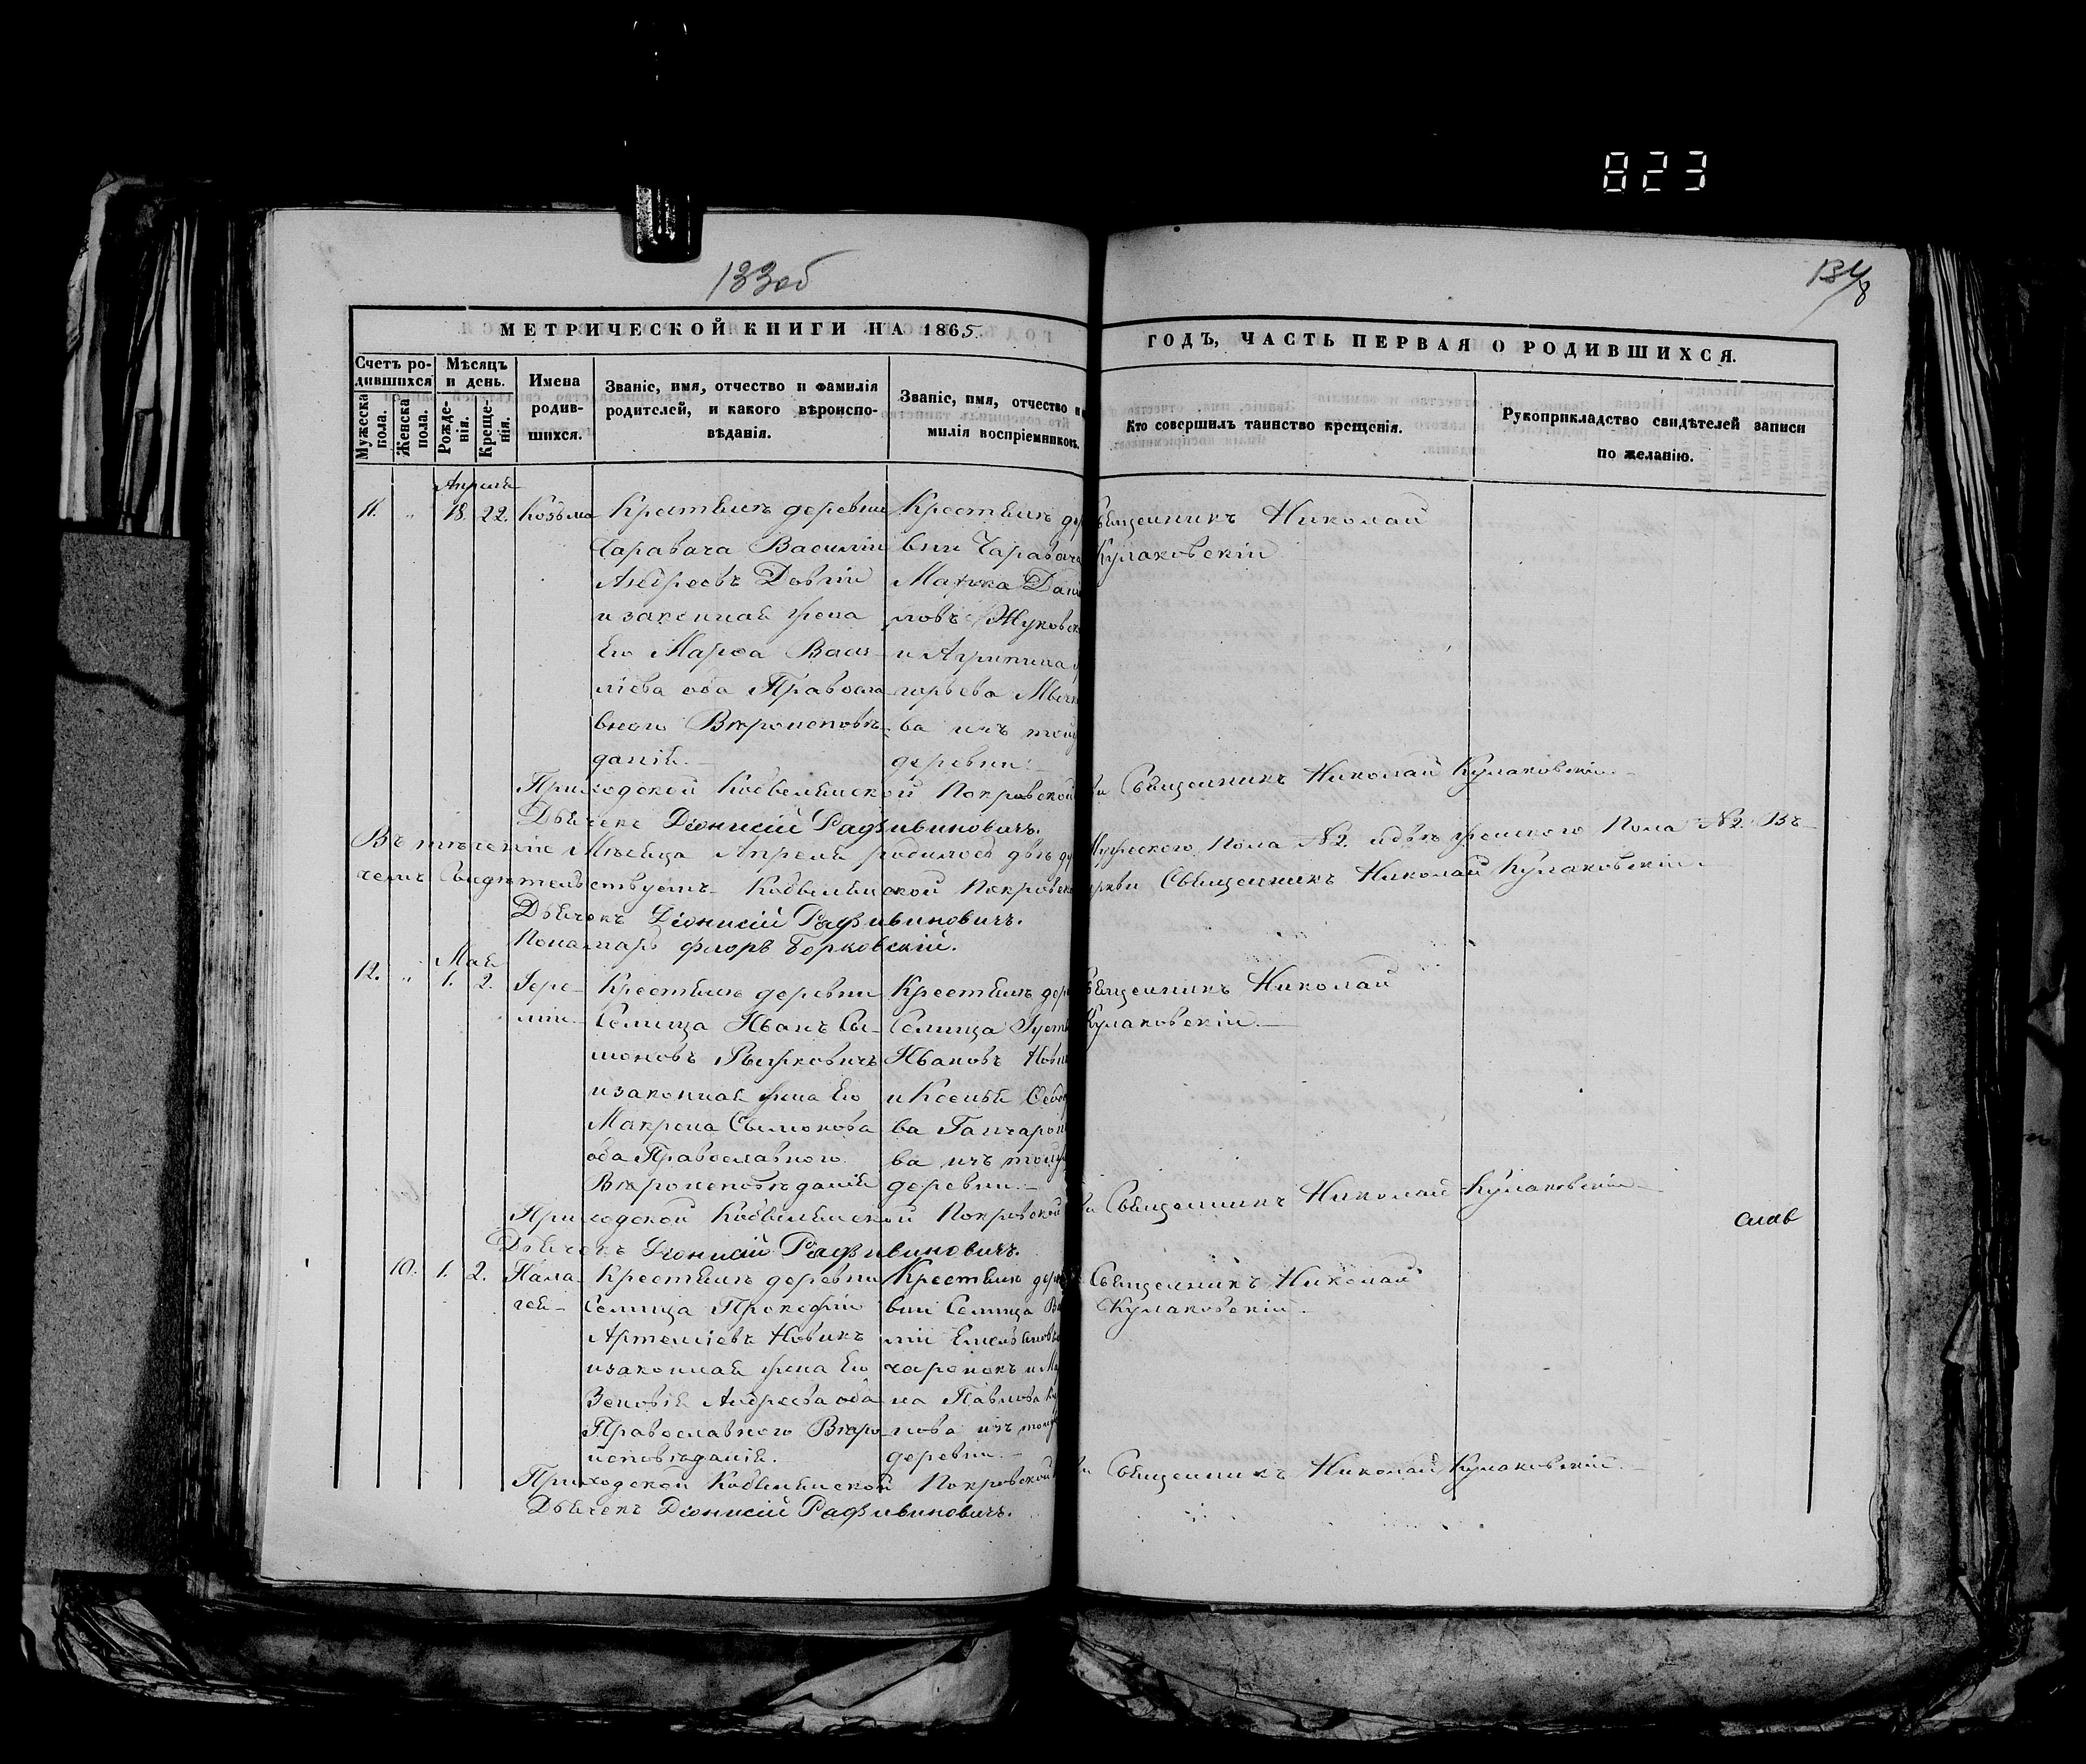 823
133об
134
8
МЕТРИЧЕСКОЙ КНИГИ НА 1865.
ГОДЪ, ЧАСТЬ ПЕРВАЯ О РОДИВШИХСЯ.
Счетъ ро-
дившихся
Мужеска пола.
Женска пола.
Мѣсяцъ
и день.
Рожде-
нія.
Креще-
нія.
Имена
родив-
шихся.
Званіе, имя, отчество и фамилія
родителей, и какого вѣроиспо-
вѣданія.
Званіе, имя, отчество и
милія воспріемниковъ.
Кто совершилъ таинство крещенія.
Рукоприкладство свидѣтелей записи
по желанію.
Апрѣля
11. " 18. 22. Козьма
Крестьянъ деревни
Чаравача Василій
Андреевъ Довгій
и законная жена
Его Марѳа Васи-
ліева оба Правосла-
внаго Вѣроисповѣ-
данія.
Крестьянъ де
вни Чаравача
Марка Дани
ловъ Жуковск
и Агрипина
горьева
ва изъ тойж
деревни.
Священникъ Николай
Кулаковскій
Приходской Кобыльской Покровской
Священникъ Николай Кулаковскій.
Дьячекъ Діонисій Радзивиновичъ.
Въ теченіе Мѣсяца Апреля родилось двѣ ду
Мужескаго Пола №2. и двѣ женского Пола №2. Въ
чемъ Свидѣтельствуетъ Кобыльской Покровск
Священникъ Николай Кулаковскій.
Дьячекъ Діонисій Радзивиновичъ.
Понамарь Флоръ Борковскій.
Мая
12. " 1. 2. Іере-
мія
Крестьянъ деревни
Селища Иванъ Си-
моновъ Рыжковичъ
и законная жена Его
Макрена Сымонова
оба Православного
Вѣроисповѣданія
Крестьянъ дере
Селища Густ
Ивановъ Нови
и Ксенья Ѳедо
ва Ганчаро
ва изъ тойж
деревни.
Священникъ Николай
Кулаковскій.
Приходской Кобыльской Покровской
Священникъ Николай Кулаковскій
слав
Дьячекъ Діонисій Радзивиновичъ.
10. 1. 2. Пала-
гея
Крестьянъ деревни
Селища Прокофій
Артеміевъ Новикъ
и законная жена Его
Зеновія Андреева оба
Православного Вѣро-
исповѣданія.
Крестьянъ дере
вни Селища Ва
лій Емельяновъ
чаренокъ и Ма
на Павлова
нова изъ тойж
деревни.
Священникъ Николай
Кулаковскій
Приходской Кобыльской Покровской
Священникъ Николай Кулаковскій.
Дьячекъ Діонисій Радзивиновичъ.